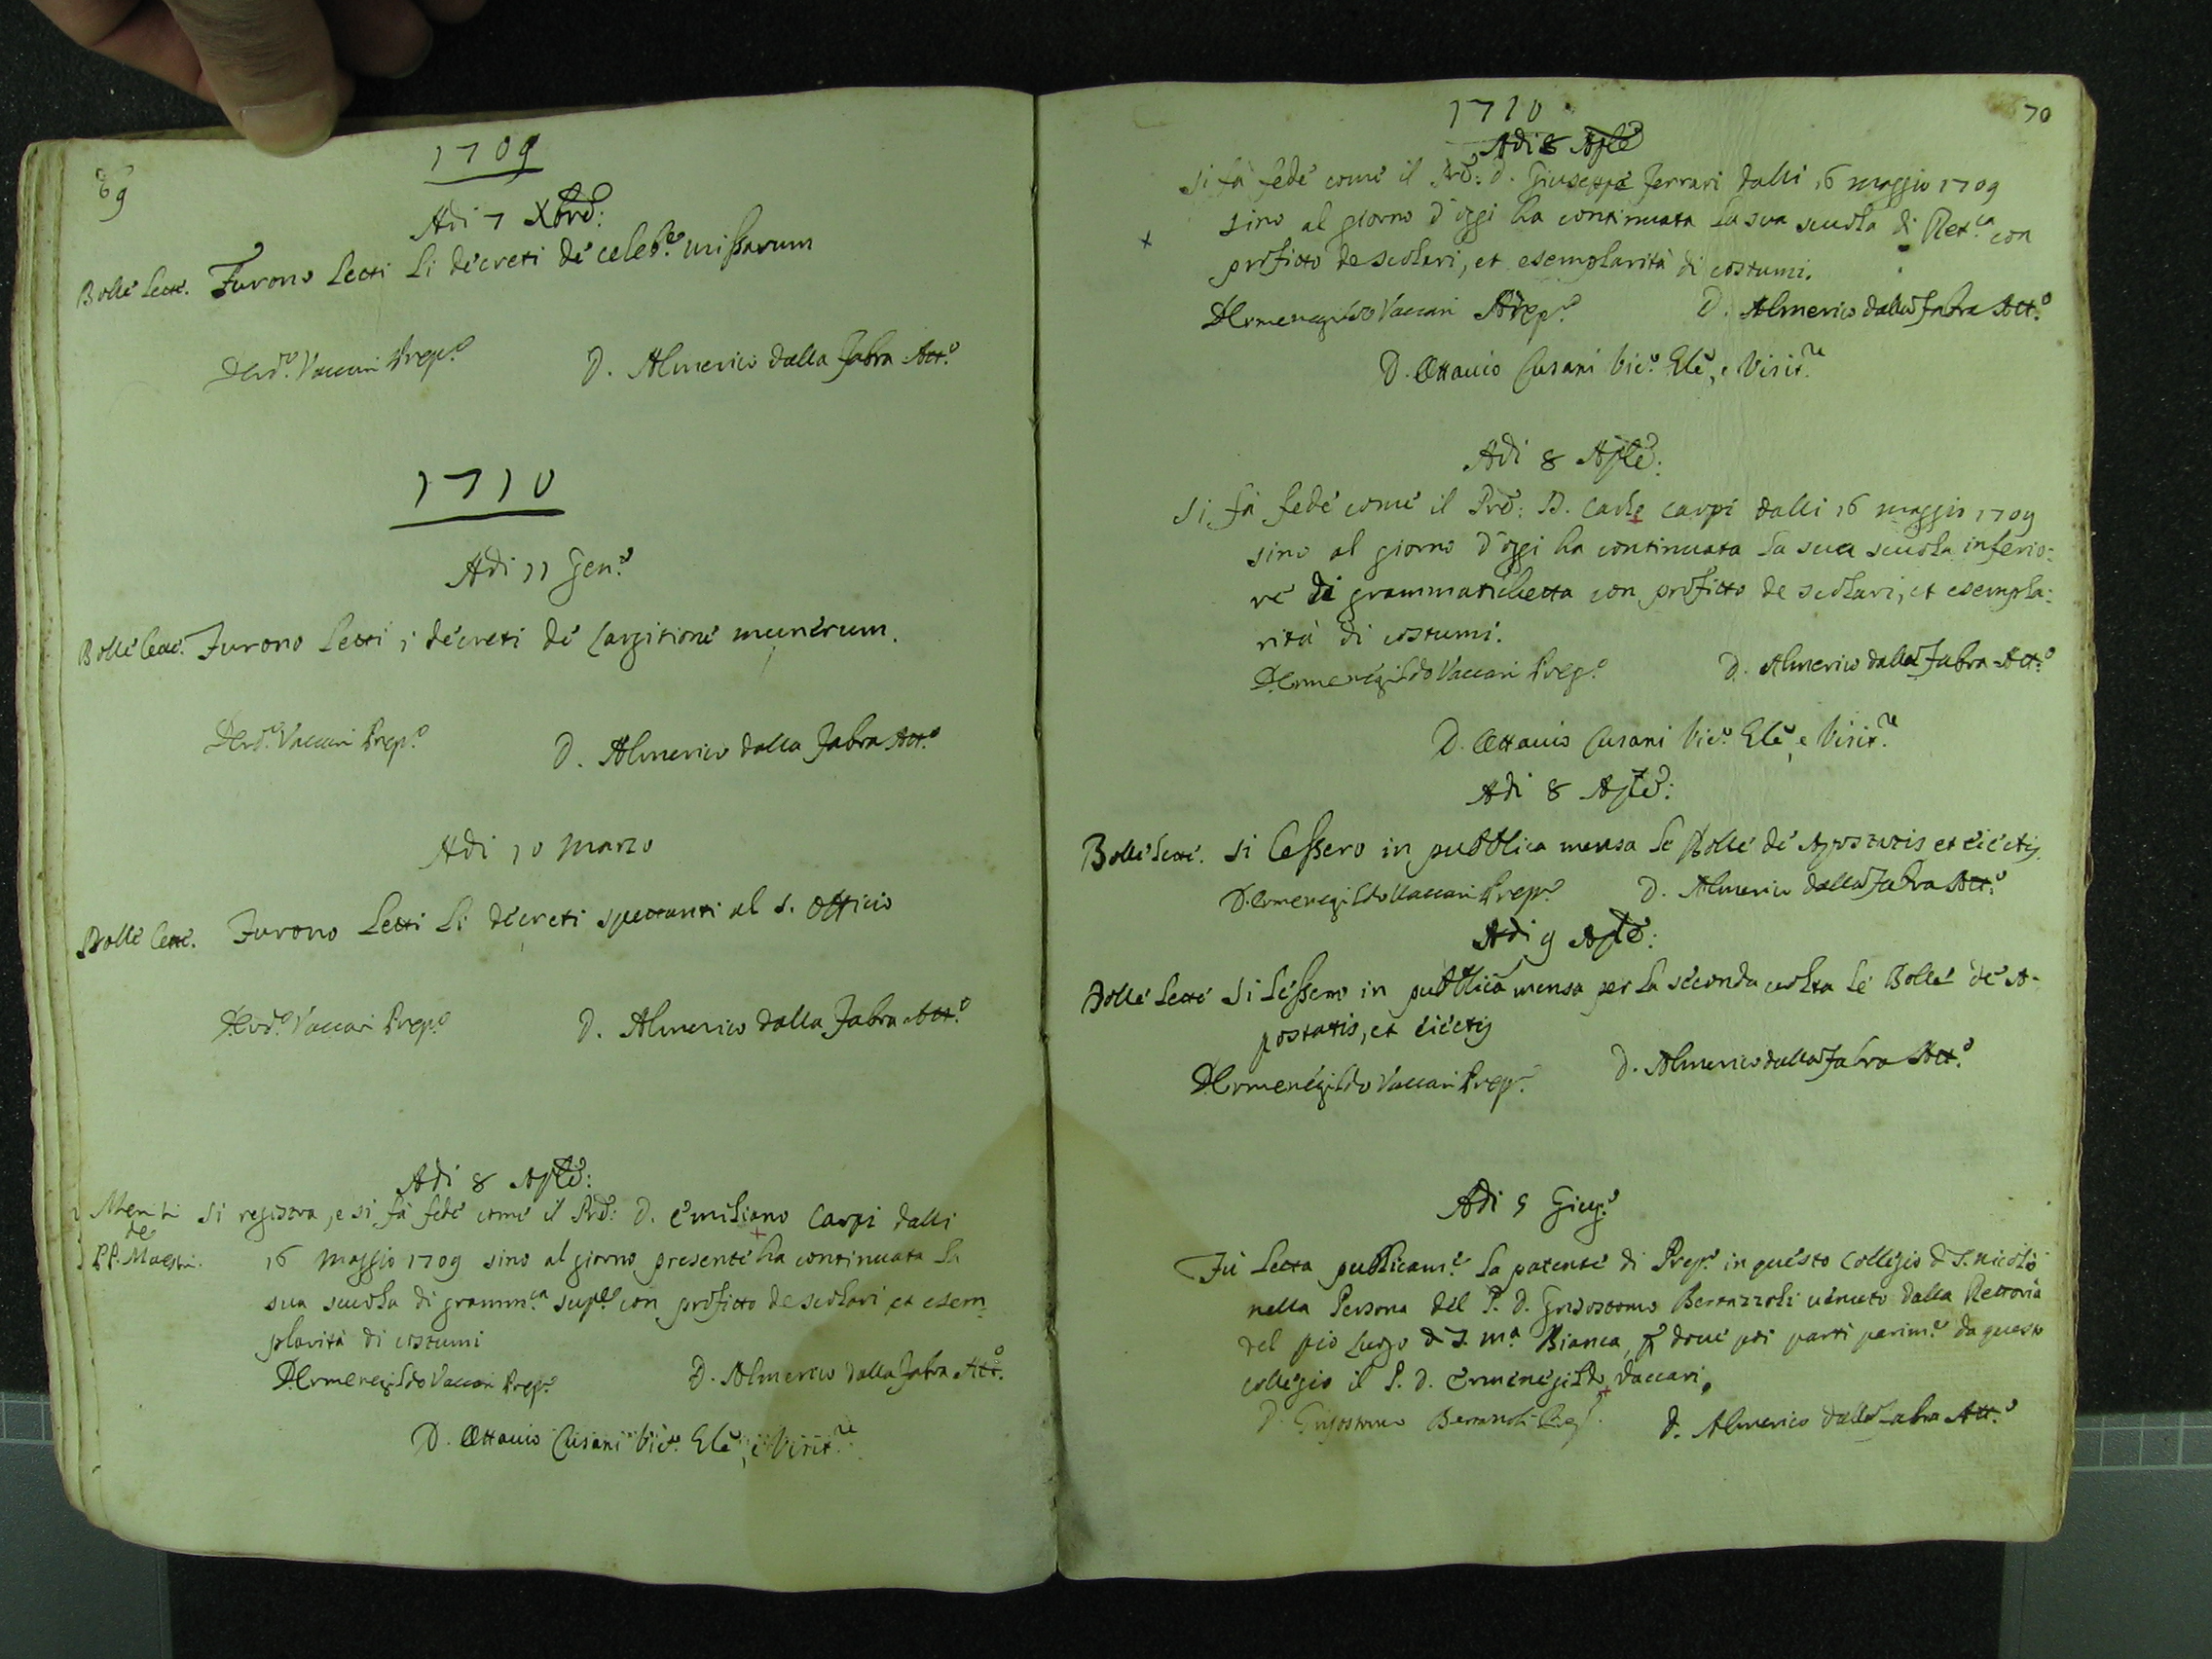 69
1709
Adi 7 Xbre:
Bolle lette. Furono letti li decreti de celeb.e missarum
D Erd.o Vaccari Prep.o D. Almerico dalla Fabra Att.o
1710
Adi 11 Gen.o
Bolle lette. Furono letti i decreti de largitione munerum.
D Erd.o Vaccari Prep.o D. Almerico dalla Fabra Att.o
Adi 10 Marzo
Bolle lette. Furono letti li decreti spettanti al S. Officio
D Erd.o Vaccari Prep.o D. Almerico dalla Fabra Att.o
Adi 8 Aple:
Meriti de PP. Maestri.
Si registra, e si fà fede come il Prd: D. Emiliano Carpi dalli
16 maggio 1709 sino al giorno presente ha continuata la
sua scuola di gramm.ca sup.e con profitto de scolari et esem-
plarità di costumi
D Ermenegildo Vaccari Prep.o D. Almerico dalla Fabra Att.o
D. Ottavio Cusani Vic.o Gle, e Visit.re
70
1710
Adi 8 Aple
Si fà fede come il Prd: D. Giuseppe Ferrari dalli 16 maggio 1709
sino al giorno d'oggi ha continuata la sua scuola di Ret.ca con
profitto de scolari, et esemplarità di costumi.
D Ermenegildo Vaccari Prep.o D. Almerico dalla Fabra Att.o
D. Ottavio Cusani Vic.o Gle, e Visit.re
Adi 8 Aple:
Si fà fede come il Prd: D. Carlo Carpi dalli 16 maggio 1709
sino al giorno d'oggi ha continuata la sua scuola inferio-
re di grammatichetta con profitto de scolari, et esempla-
rità di costumi.
D Ermenegildo Vaccari Prep.o D. Almerico dalla Fabra Att.o
D. Ottavio Cusani Vic.o Gle, e Visit.re
Adi 8 Aple:
Bolle lette. Si lessero in pubblica mensa le Bolle de Apostatis et eiectis
D. Ermenegildo Vaccari Prep.o D. Almerico dalla Fabra Att.o
Adi 9 Aple:
Bolle lette Si lessero in pubblica mensa per la seconda volta le Bolle de A-
postatis, et eiectis
D Ermenegildo Vaccari Prep.o D. Almerico dalla Fabra Att.o
Adi 5 Giug.o
Fù letta publicam.e la patente di Prep.o in questo Collegio di S. Nicolò
nella Persona del P. D. Grisostomo Bertazzoli venuto dalla Rettoria
del pio luogo di S. M.a Bianca, dove poi partì parim.e da questo
collegio il P. D. Ermenegildo Vaccari.
D. Grisostomo Bertazzoli Prep. D. Almerico dalla Fabra Att.o